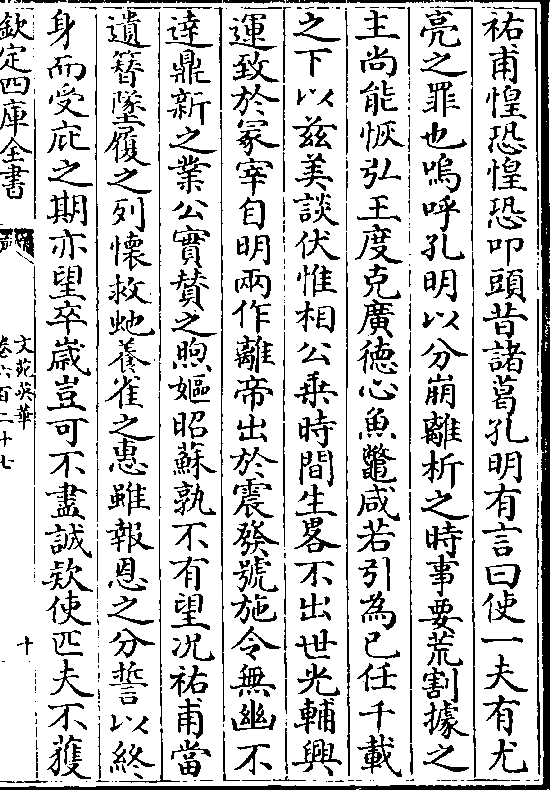 祐甫惶恐惶恐叩頭昔諸葛孔明有言曰使一夫有尤
亮之罪也嗚呼孔明以分崩離析之時事要荒割據之
主尚能恢弘王度克廣德心魚鼈咸若引為已任千載
之下以兹美談伏惟相公乗時間生畧不出世光輔興
運致於冢宰自明兩作離帝出於震發號施令無幽不
逹鼎新之業公實賛之煦嫗昭蘇孰不有望况祐甫當
遺簪墜履之列懷救虵養雀之惠雖報恩之分誓以終
身而受庇之期亦望卒歳豈可不盡誠欵使匹夫不䕶
欽定四庫全書
文苑英華
卷六百二十七
十